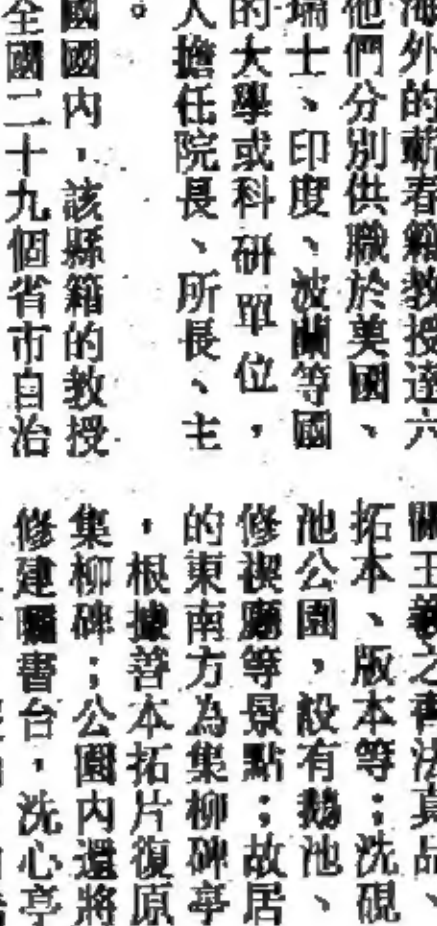 海外的蘄春籍教授達六
他們分別供職於美國、
瑞士、印度、波蘭等國
的大學或科研單位,
人擔任院長、所長、主
。
國國內,該縣籍的教授
全國二十九個省市自治
關王羲之書法真品、
拓本、版本等;洗硯
池公園,設有鵝池、
修禊廳等景點;故居
的東南方為集柳碑亭
,根據善本拓片復原
集柳碑;公園內還將
修建曬書台,洗心亭